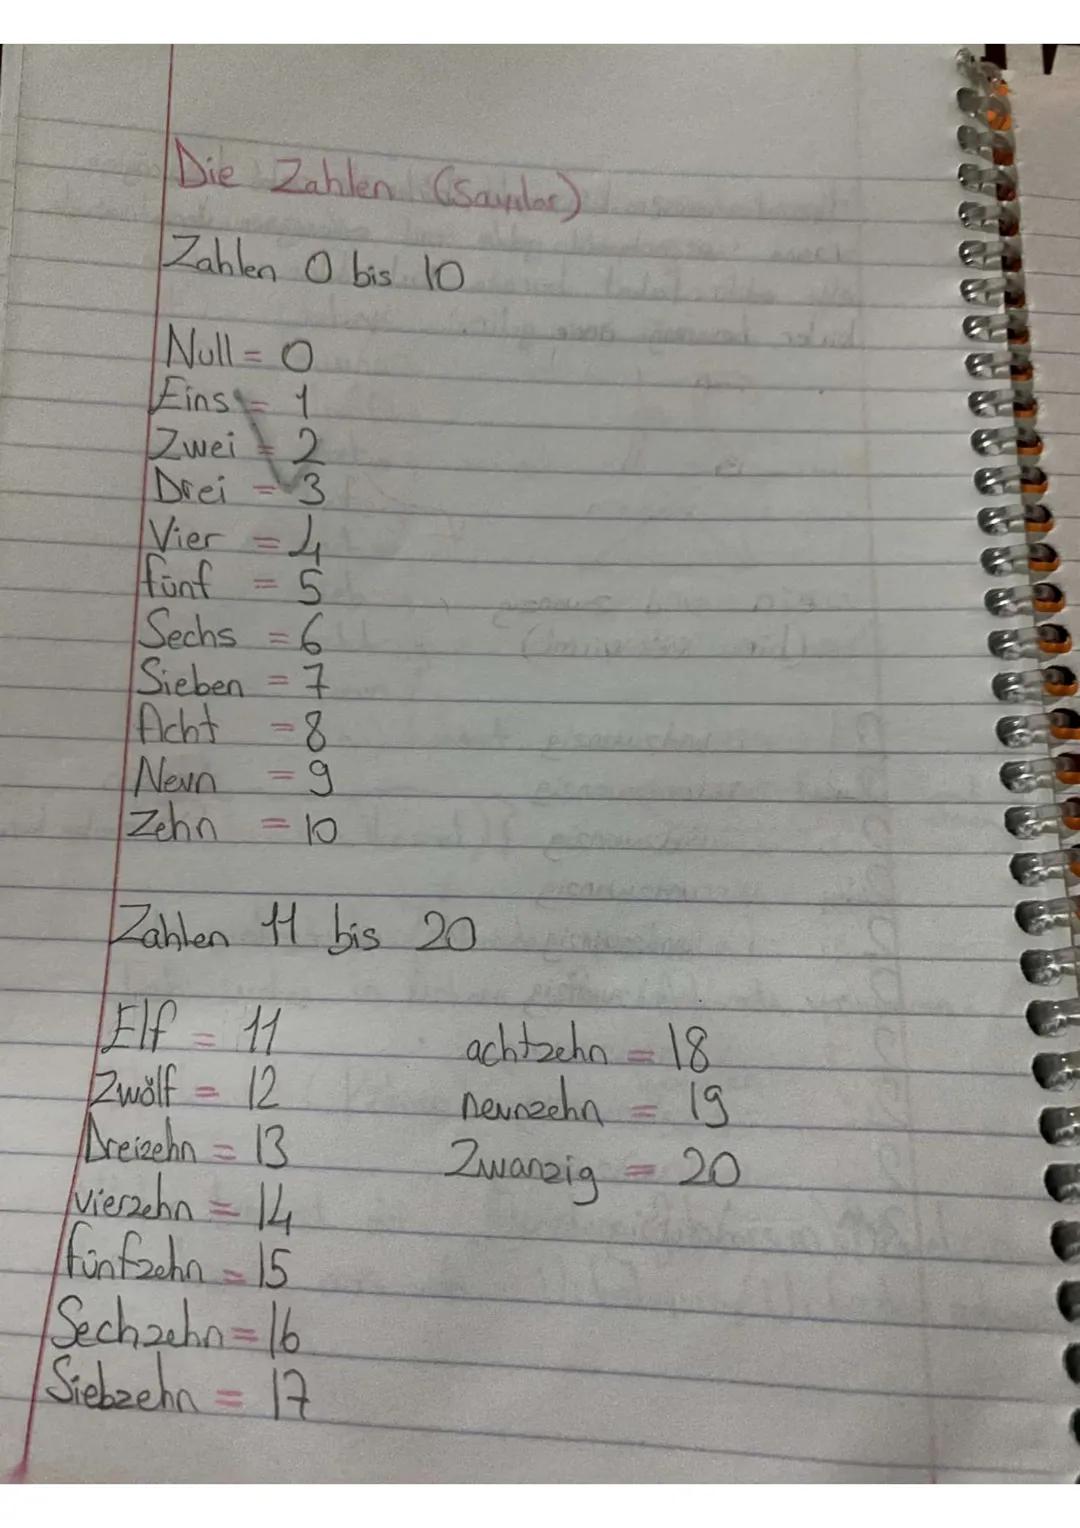 Die Zahlen (Sayılar)
Zahlen 0 bis 10
Null = 0
Eins = 1
Zwei = 2
Drei = 3
Vier = 4
fünf = 5
Sechs = 6
Sieben = 7
Acht = 8
Neun = 9
Zehn = 10
Zahlen 11 bis 20
Elf = 11
Zwölf = 12
Dreizehn = 13
vierzehn = 14
fünfzehn = 15
Sechzehn = 16
Siebzehn = 17
achtzehn = 18
neunzehn = 19
Zwanzig = 20